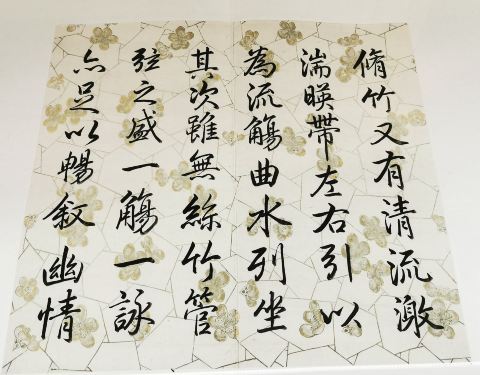 脩竹又有清流激
湍暎帶左右引以
為流觴曲水列坐
其次雖無絲竹管
弦之盛一觴一詠
亦足以暢敘幽情